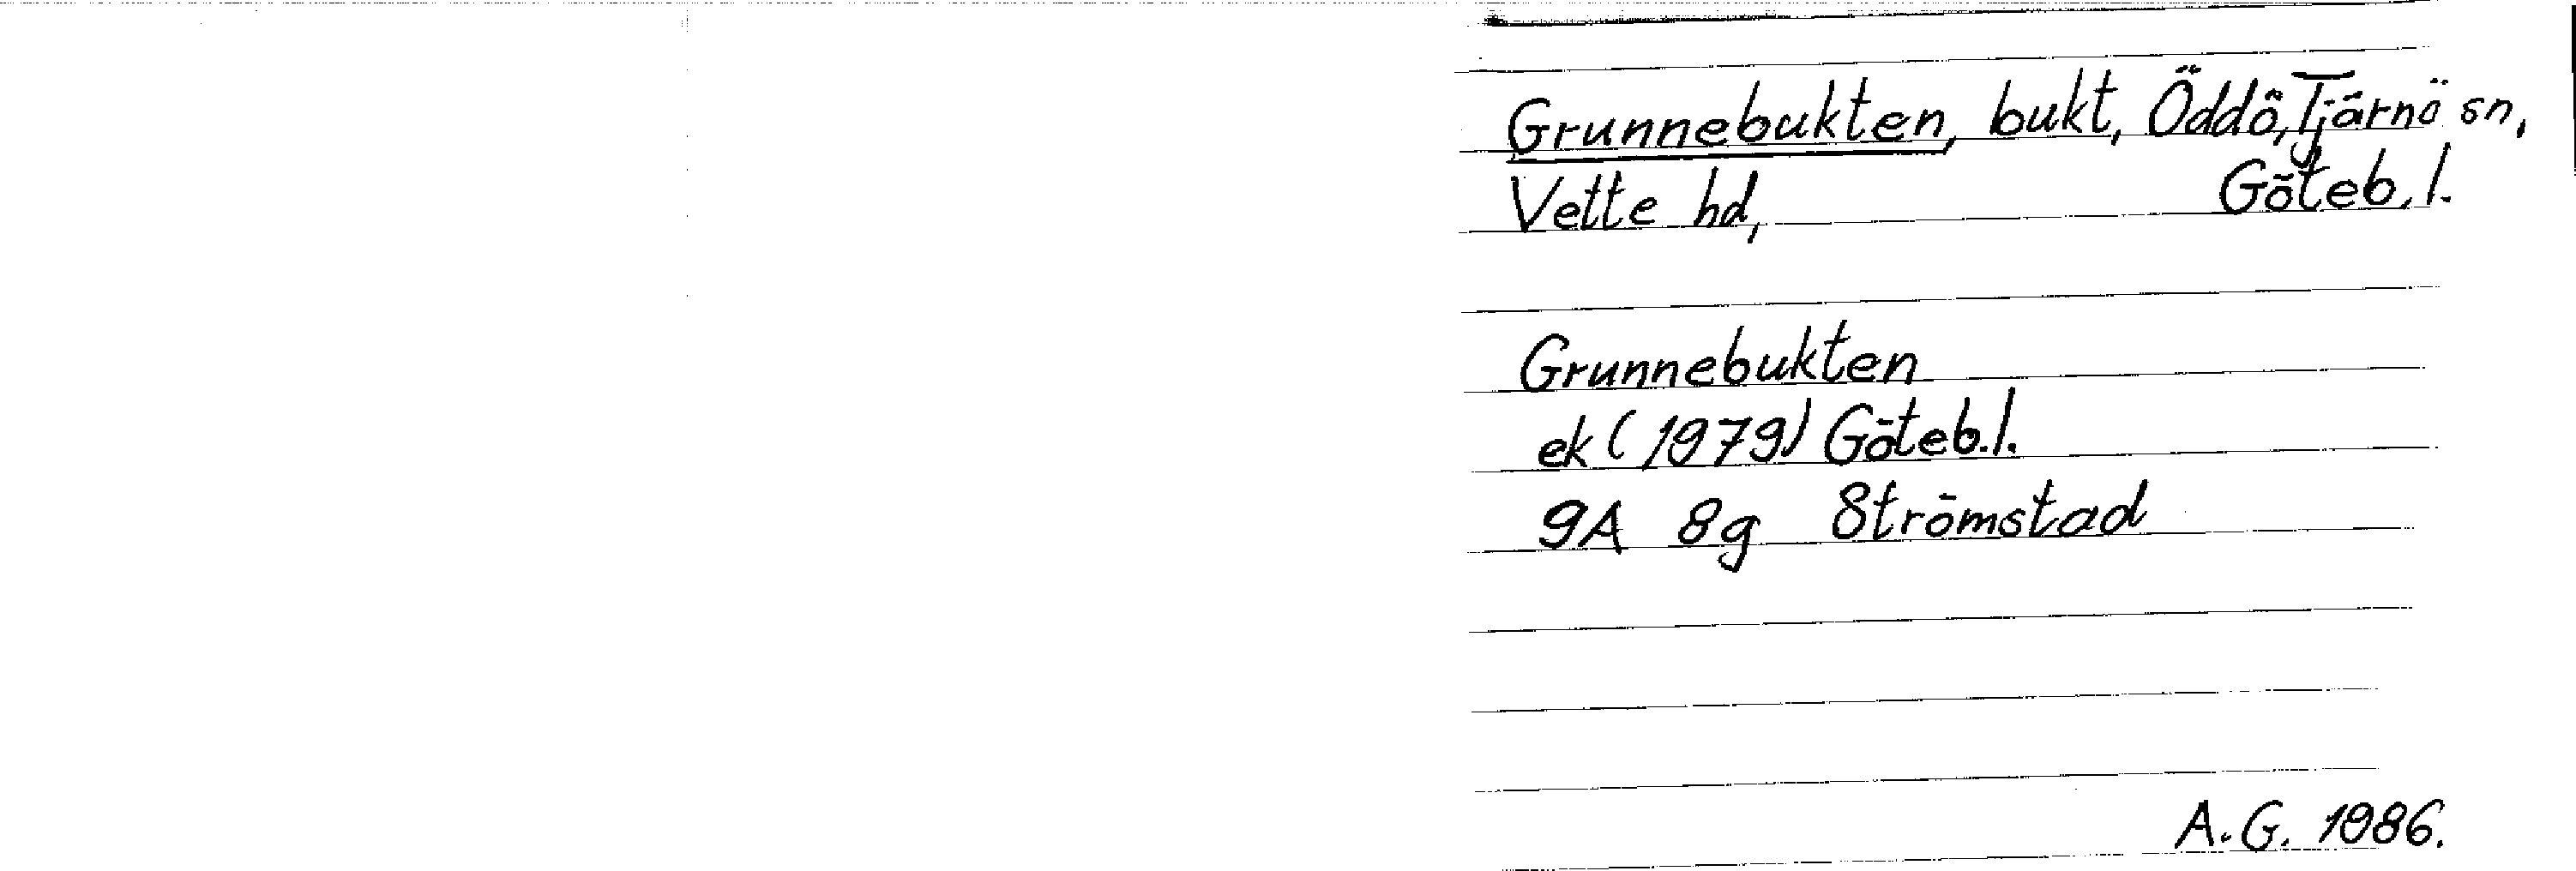 Grunnebukten, bukt, Öddö, Tjärnö sn,
Vette hd, Göteb. l.
Grunnebukten
ek (1979) Göteb. l.
9A 8g Strömstad
A. G. 1986.